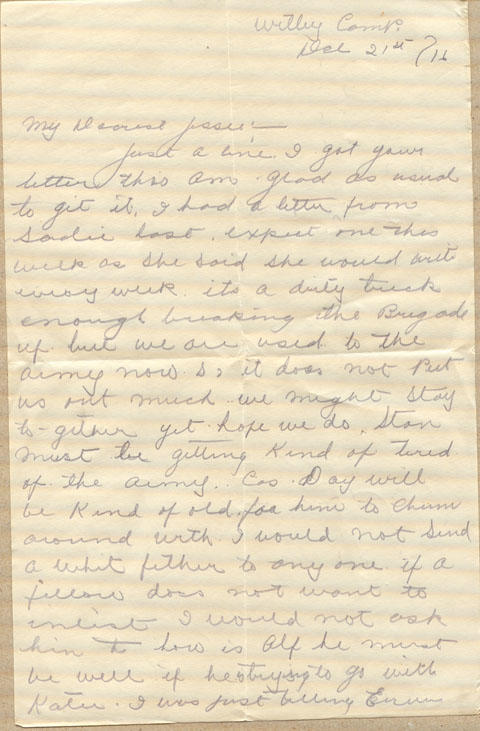 Witley Camp.
Dec 21st /16
My Dearest Jessie:—
Just a line. I got your
letter this am. glad as usual
to git it. I had a letter from
Sadie last. expect one this
week as she said she would write
every week. its a dirty trick
enough breaking the Brigade
up but we are used to the
army now so it does not Put
us out much. we might stay
to-gether yet hope we do. Stan
must be getting Kind of tired
of the army. Cos. Day will
be Kind of old for him to chum
around with. I would not send
a whit fether to any one. if a
fellow does not want to
inlist I would not ask
him to how is Alf he must
be well if hes trying to go with
Katie. I was just telling